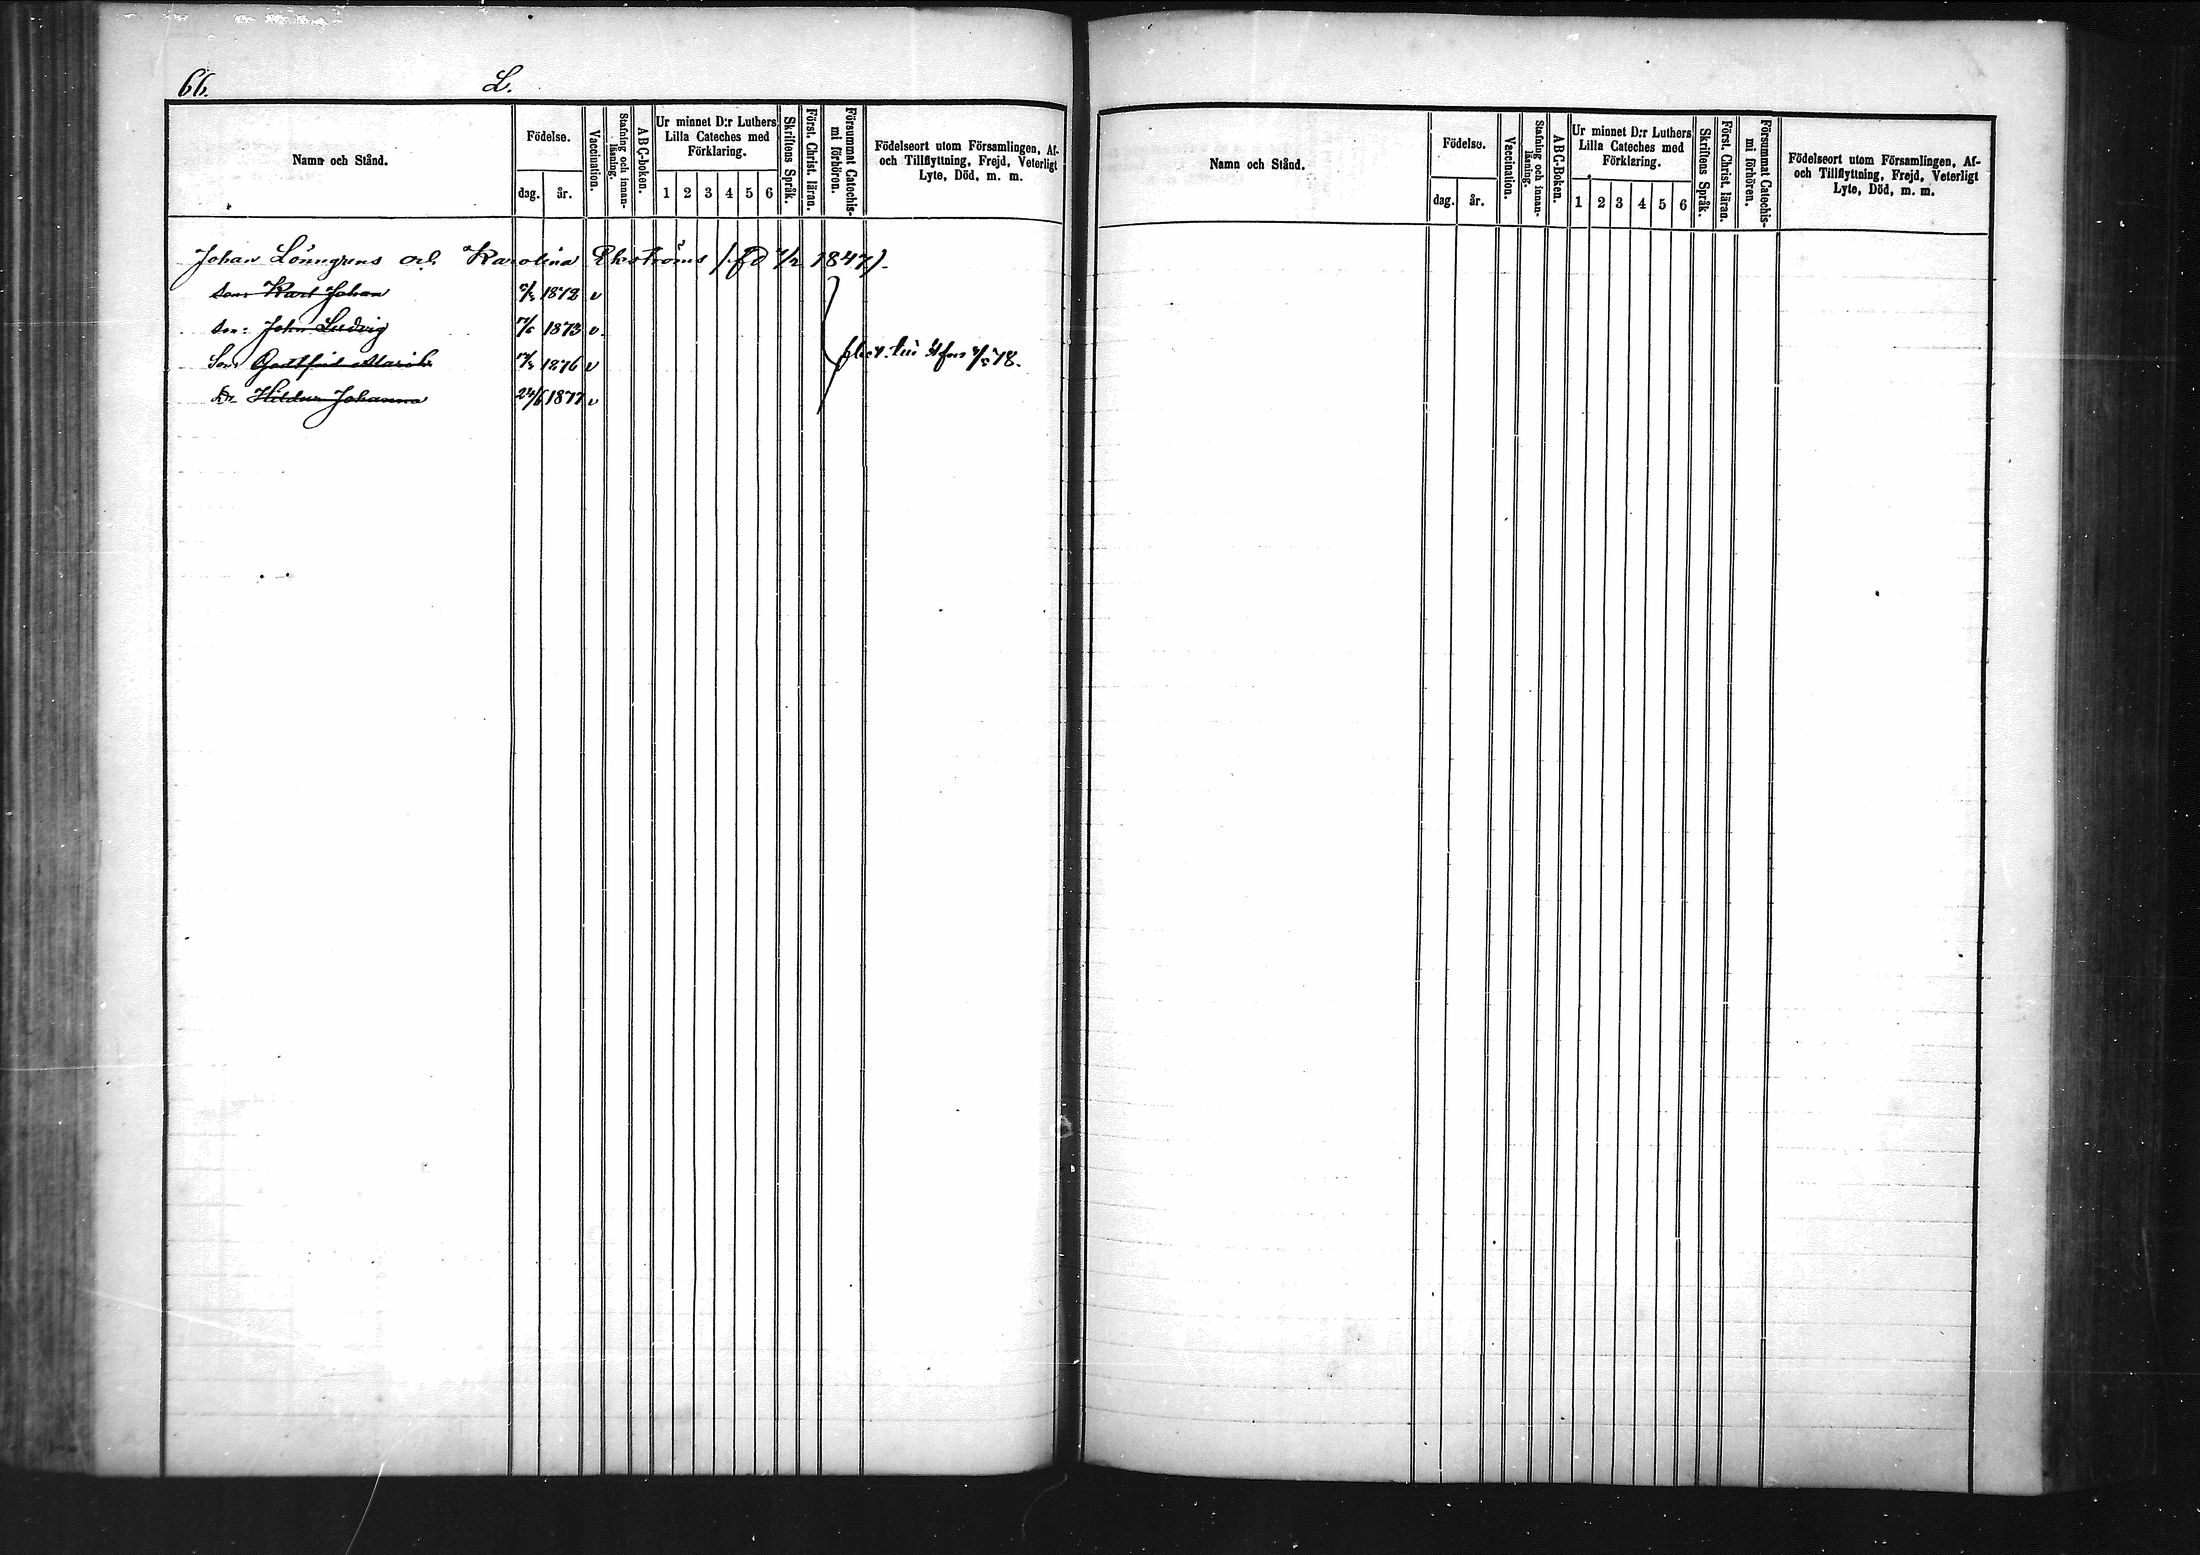 66. L.
Namn och Stånd.
Födelse.
dag. år.
Vaccination.
Stafning och innan-
läsning.
ABC-boken.
Ur minnet D:r Luthers
Lilla Cateches med
Förklaring.
1 2 3 4 5 6
Skriftens Språk.
Först. Christ. läran.
Försummat Catechis-
mi förhören.
Födelseort utom Församlingen, Af-
och Tillflyttning, Frejd, Veterligt
Lyte, Död, m. m.
Johan Lönngrens och Karolina Ekströms (fd 1847).
Son: Karl Johan 1872 v
Son: John Ludvig 1873 v.
Son: Gottfrid 1876 v
Dr Hildur Johanna 24/6 1877 v
78.
Namn och Stånd.
Födelse.
dag. år.
Vaccination.
Stafning och innan-
läsning.
ABC-Boken.
Ur minnet D:r Luthers
Lilla Cateches med
Förklaring.
1 2 3 4 5 6
Skriftens Språk.
Först. Christ. läran.
Försummat Catechis-
mi förhören.
Födelseort utom Församlingen, Af-
och Tillflyttning, Frejd, Veterligt
Lyte, Död, m. m.